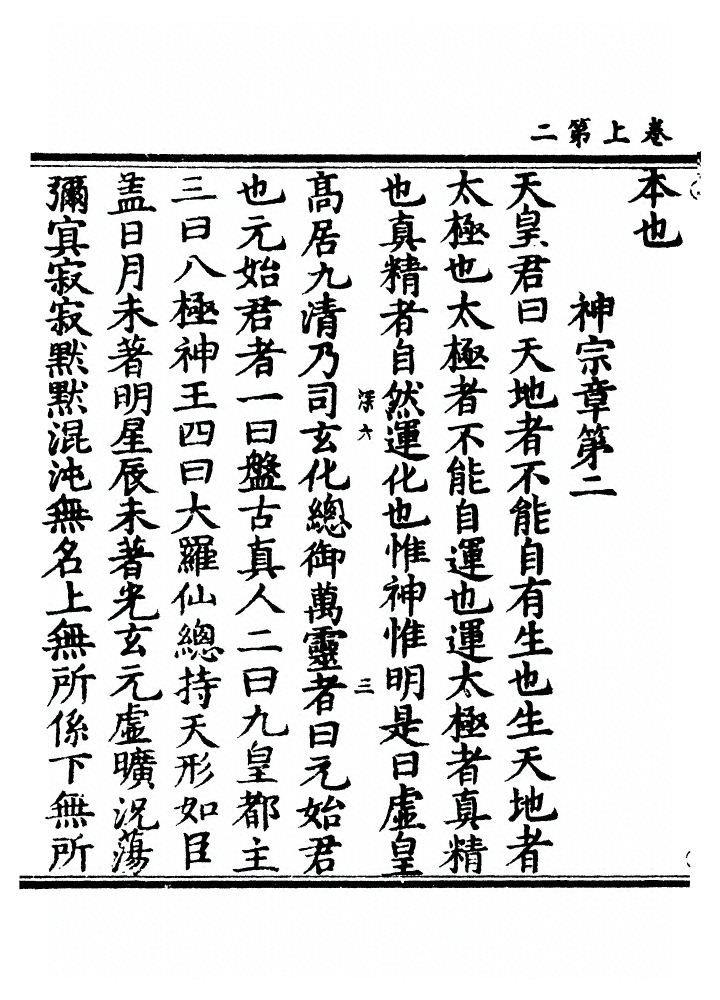 卷上第二
本也
神宗章第二
天皇君曰天地者不能自有生也生天地者
太極也太極者不能自運也運太極者真精
也真精者自然運化也惟神惟明是曰虛皇
深六
三
高居九清乃司玄化總御萬靈者曰元始君
也元始君者一曰盤古真人二曰九皇都主
三曰八極神王四曰大羅仙總持天形如巨
盖日月未著明星辰未著光玄元虛曠況蕩
彌寘寂寂默默混沌無名上無所係下無所